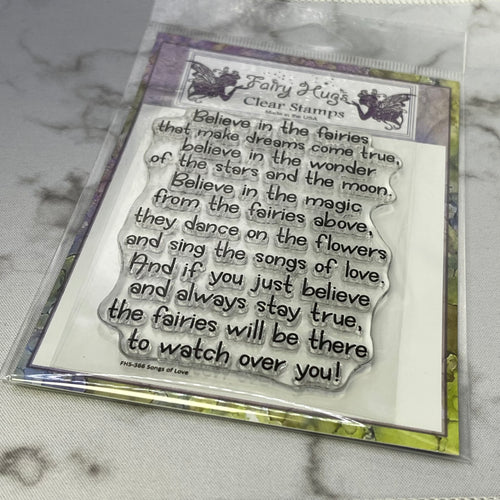 Fairy Hugs
Clear Stamps
Made in the USA
Believe in the fairies
that make dreams come true,
believe in the wonder
of the stars and the moon.
Believe in the magic
from the fairies above,
they dance on the flowers
and sing the songs of love,
And if you just believe
and always stay true,
the fairies will be there
to watch over you!
FHS-366 Songs of Love